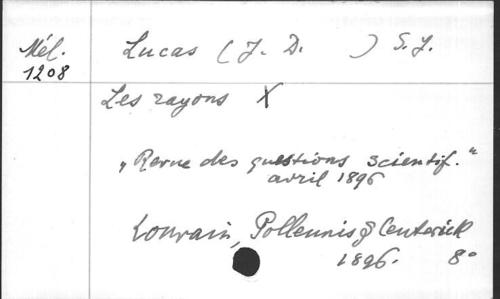 Mél.
1208
Lucas (J. D. ) S. J.
Les rayons X
„Revue des questions scientif.“
avril 1896
Louvain, Polleunis & Ceuterick
1896. 8°